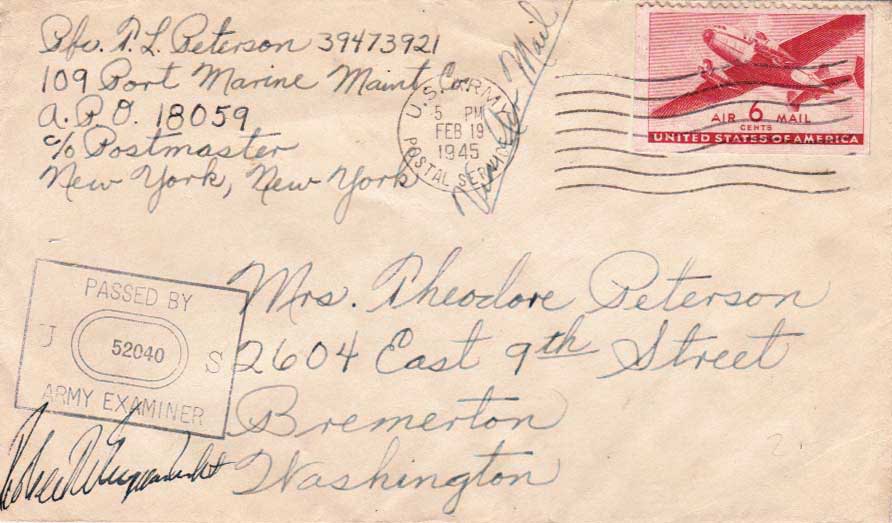 Pfc. T. L. Peterson 39473921
109 Port Marine Maint. Co.
A.P.O. 18059
c/o Postmaster
New York, New York
U.S. ARMY
5 PM
FEB 19
1945
POSTAL SERVICE
Air Mail
AIR 6 MAIL
CENTS
UNITED STATES OF AMERICA
PASSED BY
U 52040 S
ARMY EXAMINER
Mrs. Theodore Peterson
2604 East 9th Street
Bremerton
Washington